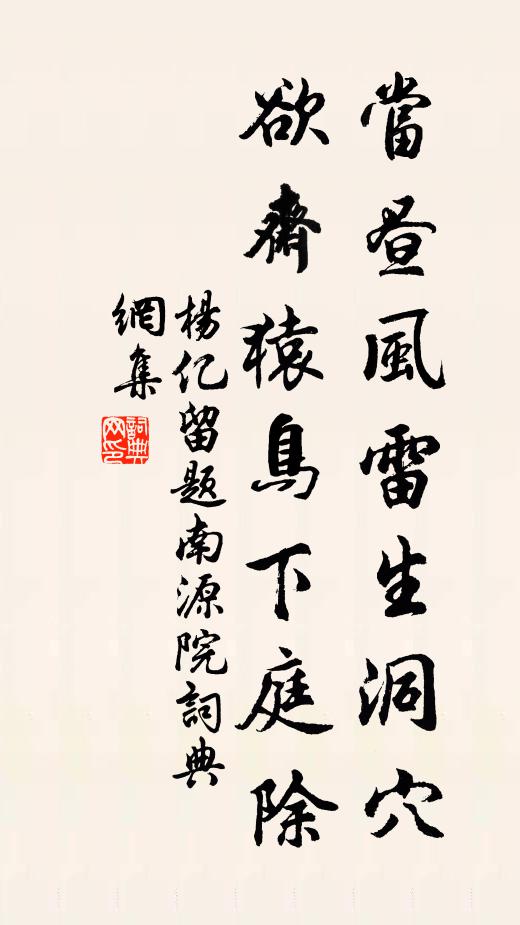 當昼風雷生洞穴
欲齋猿鳥下庭除
楊亿留题南源院詞典
網集
詞典
网印